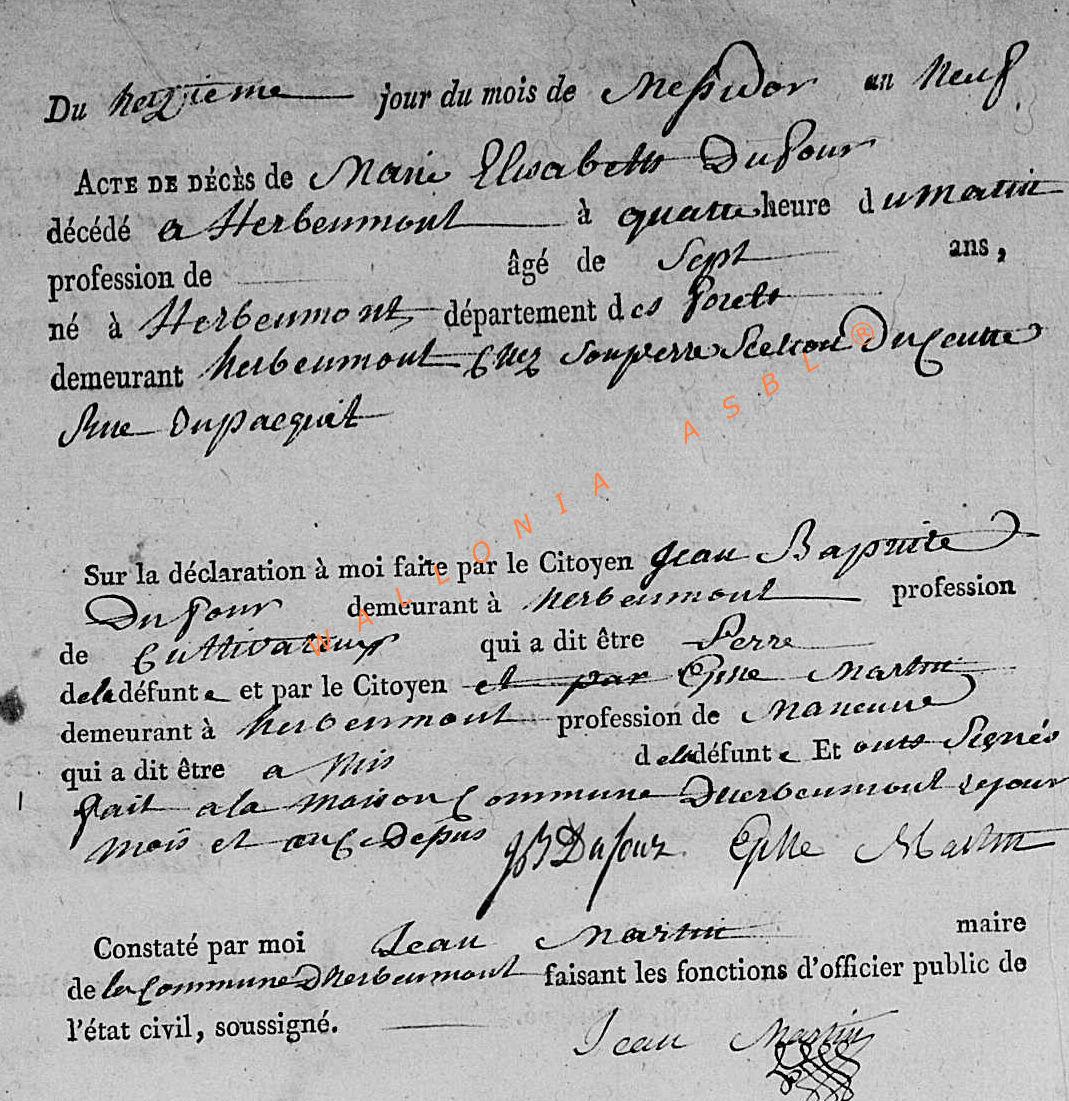 Du jour du mois de Messidor an Neuf
ACTE DE DÉCÈS de Marie Elisabeth Dufour
décédé a Herbeumont à quatre heure du matin
profession de âgé de Sept ans,
né à Herbeumont département des forets
demeurant herbeumont chez Son pierre
Rue Du pacquit
Sur la déclaration à moi faite par le Citoyen Jean Baptiste
Dufour demeurant à herbeumont profession
de Cultivateur qui a dit être Perre
de la défunte et par le Citoyen et par Martin
demeurant à herbeumont profession de
qui a dit être a mis de la défunte Et onts Signés
fait a la maison Commune Dherbeumont ce jour
mois et an
JB Dufour Martin
Constaté par moi Jean Martin maire
de la Commune Dherbeumont faisant les fonctions d'officier public de
l'état civil, soussigné.
Jean Martin
WALLONIA ASBL ®